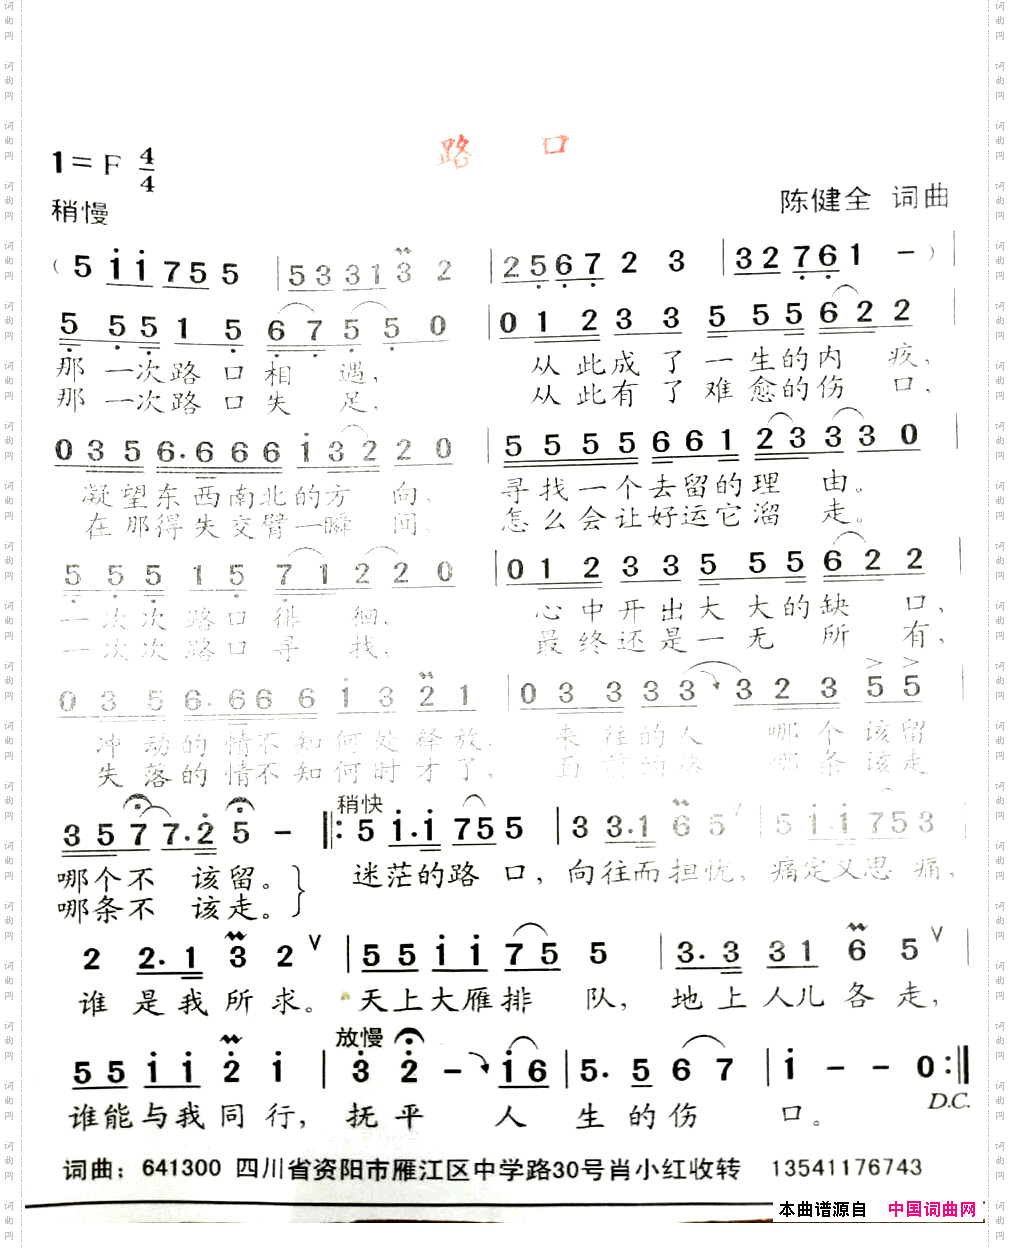 路 口
1=F 4/4
陈健全 词曲
稍慢
(5 i i 7 5 5 | 5 3 3 1 3 2 | 2 5 6 7 2 3 | 3 2 7 6 1 - ) |
5 5 5 1 5 6 7 5 5 0 | 0 1 2 3 3 5 5 5 6 2 2 |
那一次路口相遇, 从此成了一生的内疚,
那一次路口失足, 从此有了难愈的伤口,
0 3 5 6. 6 6 6 i 3 2 2 0 | 5 5 5 5 6 6 1 2 3 3 3 0 |
凝望东西南北的方向, 寻找一个去留的理由。
在那得失交臂一瞬间, 怎么会让好运它溜走。
5 5 5 1 5 7 1 2 2 0 | 0 1 2 3 3 5 5 5 6 2 2 |
一次次路口徘徊, 心中开出大大的缺口,
一次次路口寻找, 最终还是一无所有,
0 3 5 6. 6 6 6 i 3 2 1 | 0 3 3 3 3 3 2 3 5 5 |
冲动的情不知何处释放, 来往的人 哪个该留
失落的情不知何时才了, 面前的路 哪条该走
稍快
3 5 7 7. 2 5 - ‖: 5 i. i 7 5 5 | 3 3. 1 6 5 ∨ | 5 i. i 7 5 3 |
哪个不该留。 迷茫的路口, 向往而担忧, 痛定又思痛,
哪条不该走。
2 2. 1 3 2 ∨ | 5 5 i i 7 5 5 | 3. 3 3 1 6 5 ∨ |
谁是我所求。 天上大雁排队, 地上人儿各走,
放慢
5 5 i i 2 i | 3 2 - i 6 | 5. 5 6 7 | i - - 0 :‖
谁能与我同行, 抚平人生的伤口。
D.C.
词曲: 641300 四川省资阳市雁江区中学路30号肖小红收转 13541176743
本曲谱源自 中国词曲网